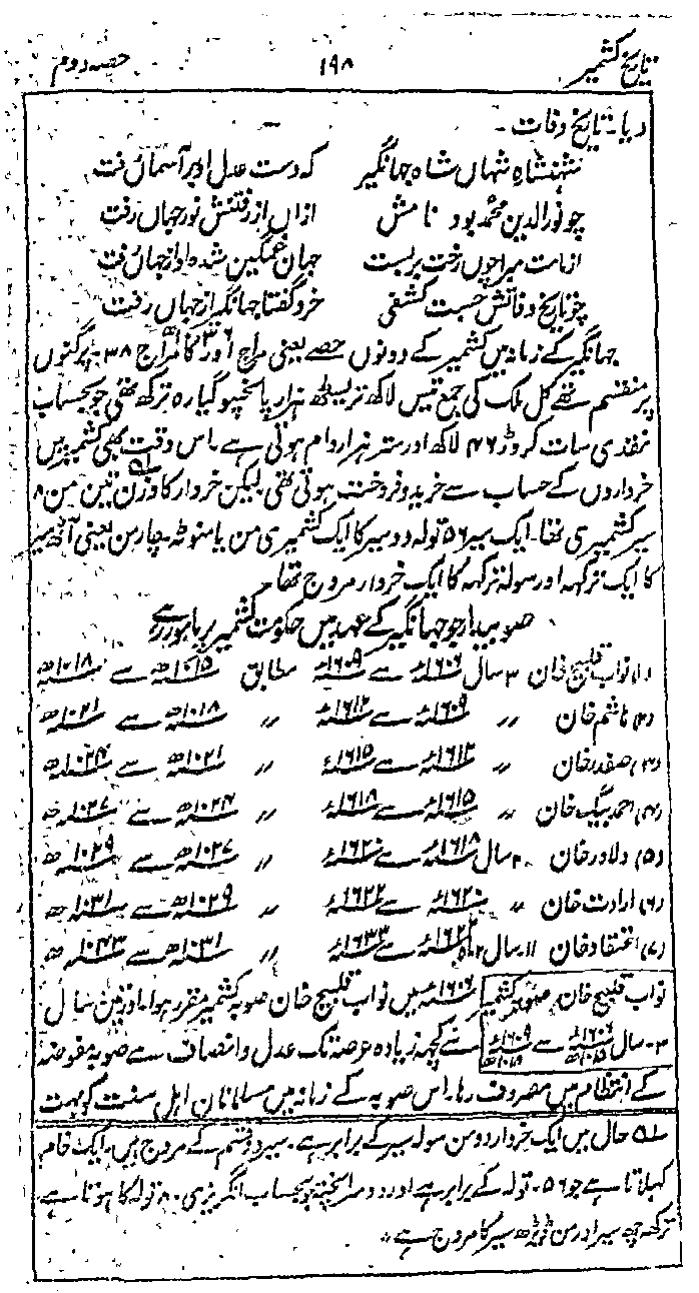 تاریخ کشمیر ۱۹۸ حصہ دوم
دیا۔ تاریخ وفات۔
شہنشاہِ شہاں شاہ جہانگیر کہ دست عدل او بر آسماں رفت
چو نورالدین محمد بود نامش ازاں از رفتنش نور جہاں رفت
جہان غمگین شدہ او از جہاں رفت
چو تاریخ وفاتش جست کشفی خرد گفتا جہانگیر از جہاں رفت
جہانگیر کے زمانہ میں کشمیر کے دونوں حصے یعنی مراج اور کامراج ۳۸ پرگنوں
پر منقسم تھے کل ملک کی جمع تیس لاکھ تریسٹھ ہزار پانچسو گیارہ ترکھ تھی جو بحساب
نقدی سات کروڑ ۴۶ لاکھ اور ستر ہزار دام ہوتی ہے۔ اس وقت بھی کشمیر میں
خرواروں کے حساب سے خرید و فروخت ہوتی تھی لیکن خروار کا وزن تین من ۸
سیر کشمیری تھا۔ ایک سیر ۵۶ تولہ دو سیر کا ایک کشمیری من یا منوٹہ۔ چار من یعنی آٹھ سیر
کا ایک ترکہہ اور سولہ ترکہہ کا ایک خروار مروج تھا۔
صوبیدار جو جہانگیر کے عہد میں حکومت کشمیر پر مامور رہے
(۱) نواب قلیچ خان ۳ سال ۱۶۰۶ء سے ۱۶۰۹ء مطابق ۱۰۱۵ھ سے ۱۰۱۸ھ
(۲) ہاشم خان 〃 ۱۶۰۹ء سے ۱۶۱۲ء 〃 ۱۰۱۸ھ سے ۱۰۲۱ھ
(۳) صفدر خان 〃 ۱۶۱۲ء سے ۱۶۱۵ء 〃 ۱۰۲۱ھ سے ۱۰۲۴ھ
(۴) احمد بیگ خان 〃 ۱۶۱۵ء سے ۱۶۱۸ء 〃 ۱۰۲۴ھ سے ۱۰۲۷ھ
(۵) دلاور خان ۲ سال ۱۶۱۸ء سے ۱۶۲۰ء 〃 ۱۰۲۷ھ سے ۱۰۲۹ھ
(۶) ارادت خان 〃 ۱۶۲۰ء سے ۱۶۲۲ء 〃 ۱۰۲۹ھ سے ۱۰۳۱ھ
(۷) اعتقاد خان ۱۱ سال ۱۶۲۲ء سے ۱۶۳۳ء 〃 ۱۰۳۱ھ سے ۱۰۴۳ھ
نواب قلیچ خان صوبہ کشمیر ۱۶۰۶ء میں نواب قلیچ خان صوبہ کشمیر مقرر ہوا۔ اور تین سال
۳۔ سال ۱۶۰۶ء ۱۰۱۵ھ سے ۱۶۰۹ء ۱۰۱۸ھ سے کچھ زیادہ عرصہ تک عدل و انصاف سے صوبہ مفوضہ
کے انتظام میں مصروف رہا۔ اس صوبہ کے زمانہ میں مسلمانان اہل سنت کو بہت
۵۱ حال میں ایک خروار دو من سولہ سیر کے برابر ہے۔ سیر دو قسم کے مروج ہیں۔ ایک خام
کہلاتا ہے جو ۵۶۔ تولہ کے برابر ہے اور دوسرا پختہ جو بحساب انگریزی ۸۰ تولہ کا ہوتا ہے
ترکہہ چھ سیر اور من ڈیڑھ سیر کا مروج ہے۔